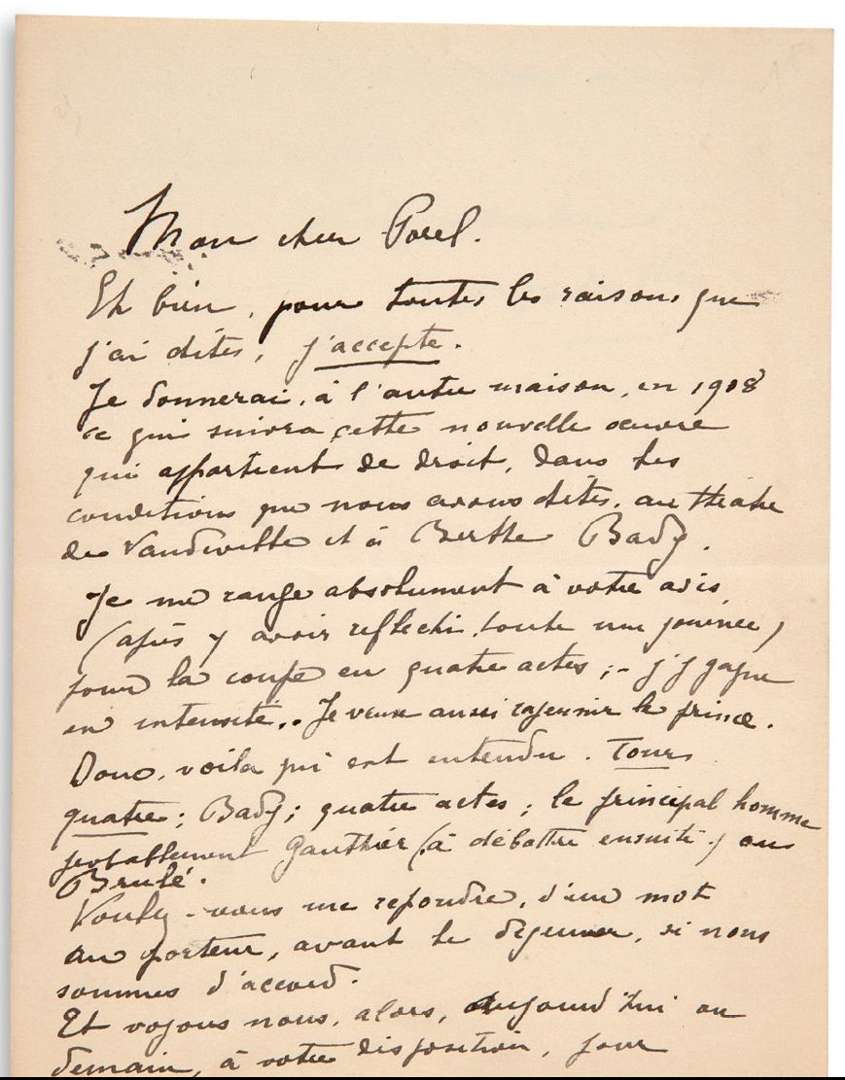 Mon cher Porel.
Eh bien, pour toutes les raisons que
j'ai dites, j'accepte.
Je donnerai, à l'autre maison, en 1908
ce qui suivra cette nouvelle œuvre
qui appartient de droit, dans les
conditions que nous avons dites, au théâtre
du Vaudeville et à Berthe Bady.
Je me range absolument à votre avis
(après y avoir reflechi toute une journée)
pour la coupe en quatre actes ; - j'y gagne
en intensité.. Je veux aussi rajeunir le prince.
Donc, voilà qui est entendu. Tours
quatre ; Bady ; quatre actes ; le principal homme
probablement Gauthier (à débattre ensuite.) ou
Brulé.
Voulez-vous me repondre, d'un mot
au porteur, avant le dejeuner, si nous
sommes d'accord.
Et voyons nous, alors, aujourd'hui ou
demain, à votre disposition, pour